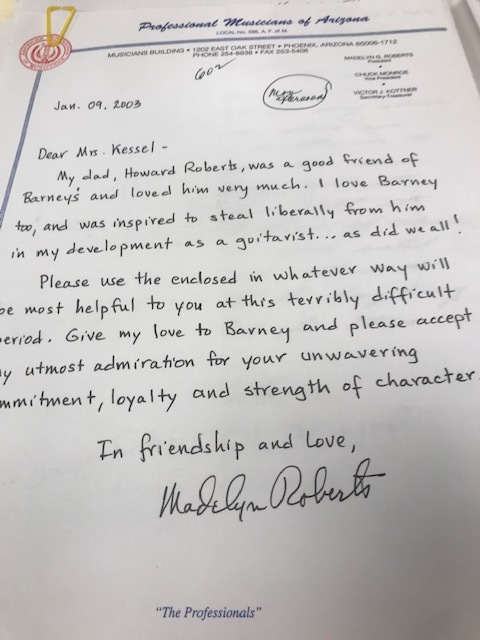 Professional Musicians of Arizona
LOCAL No. 586, A. F. of M.
MUSICIANS BUILDING • 1202 EAST OAK STREET • PHOENIX, ARIZONA 85006-1712
PHONE 254-8838 • FAX 253-6406
MADELYN G. ROBERTS
President
•
CHUCK MONROE
Vice President
•
VICTOR J. KOTTNER
Secretary-Treasurer
602
Mon
afternoon
Jan. 09, 2003
Dear Mrs. Kessel -
My dad, Howard Roberts, was a good friend of
Barney's and loved him very much. I love Barney
too, and was inspired to steal liberally from him
in my development as a guitarist... as did we all!
Please use the enclosed in whatever way will
be most helpful to you at this terribly difficult
period. Give my love to Barney and please accept
my utmost admiration for your unwavering
mmitment, loyalty and strength of character.
In friendship and Love,
Madelyn Roberts
"The Professionals"